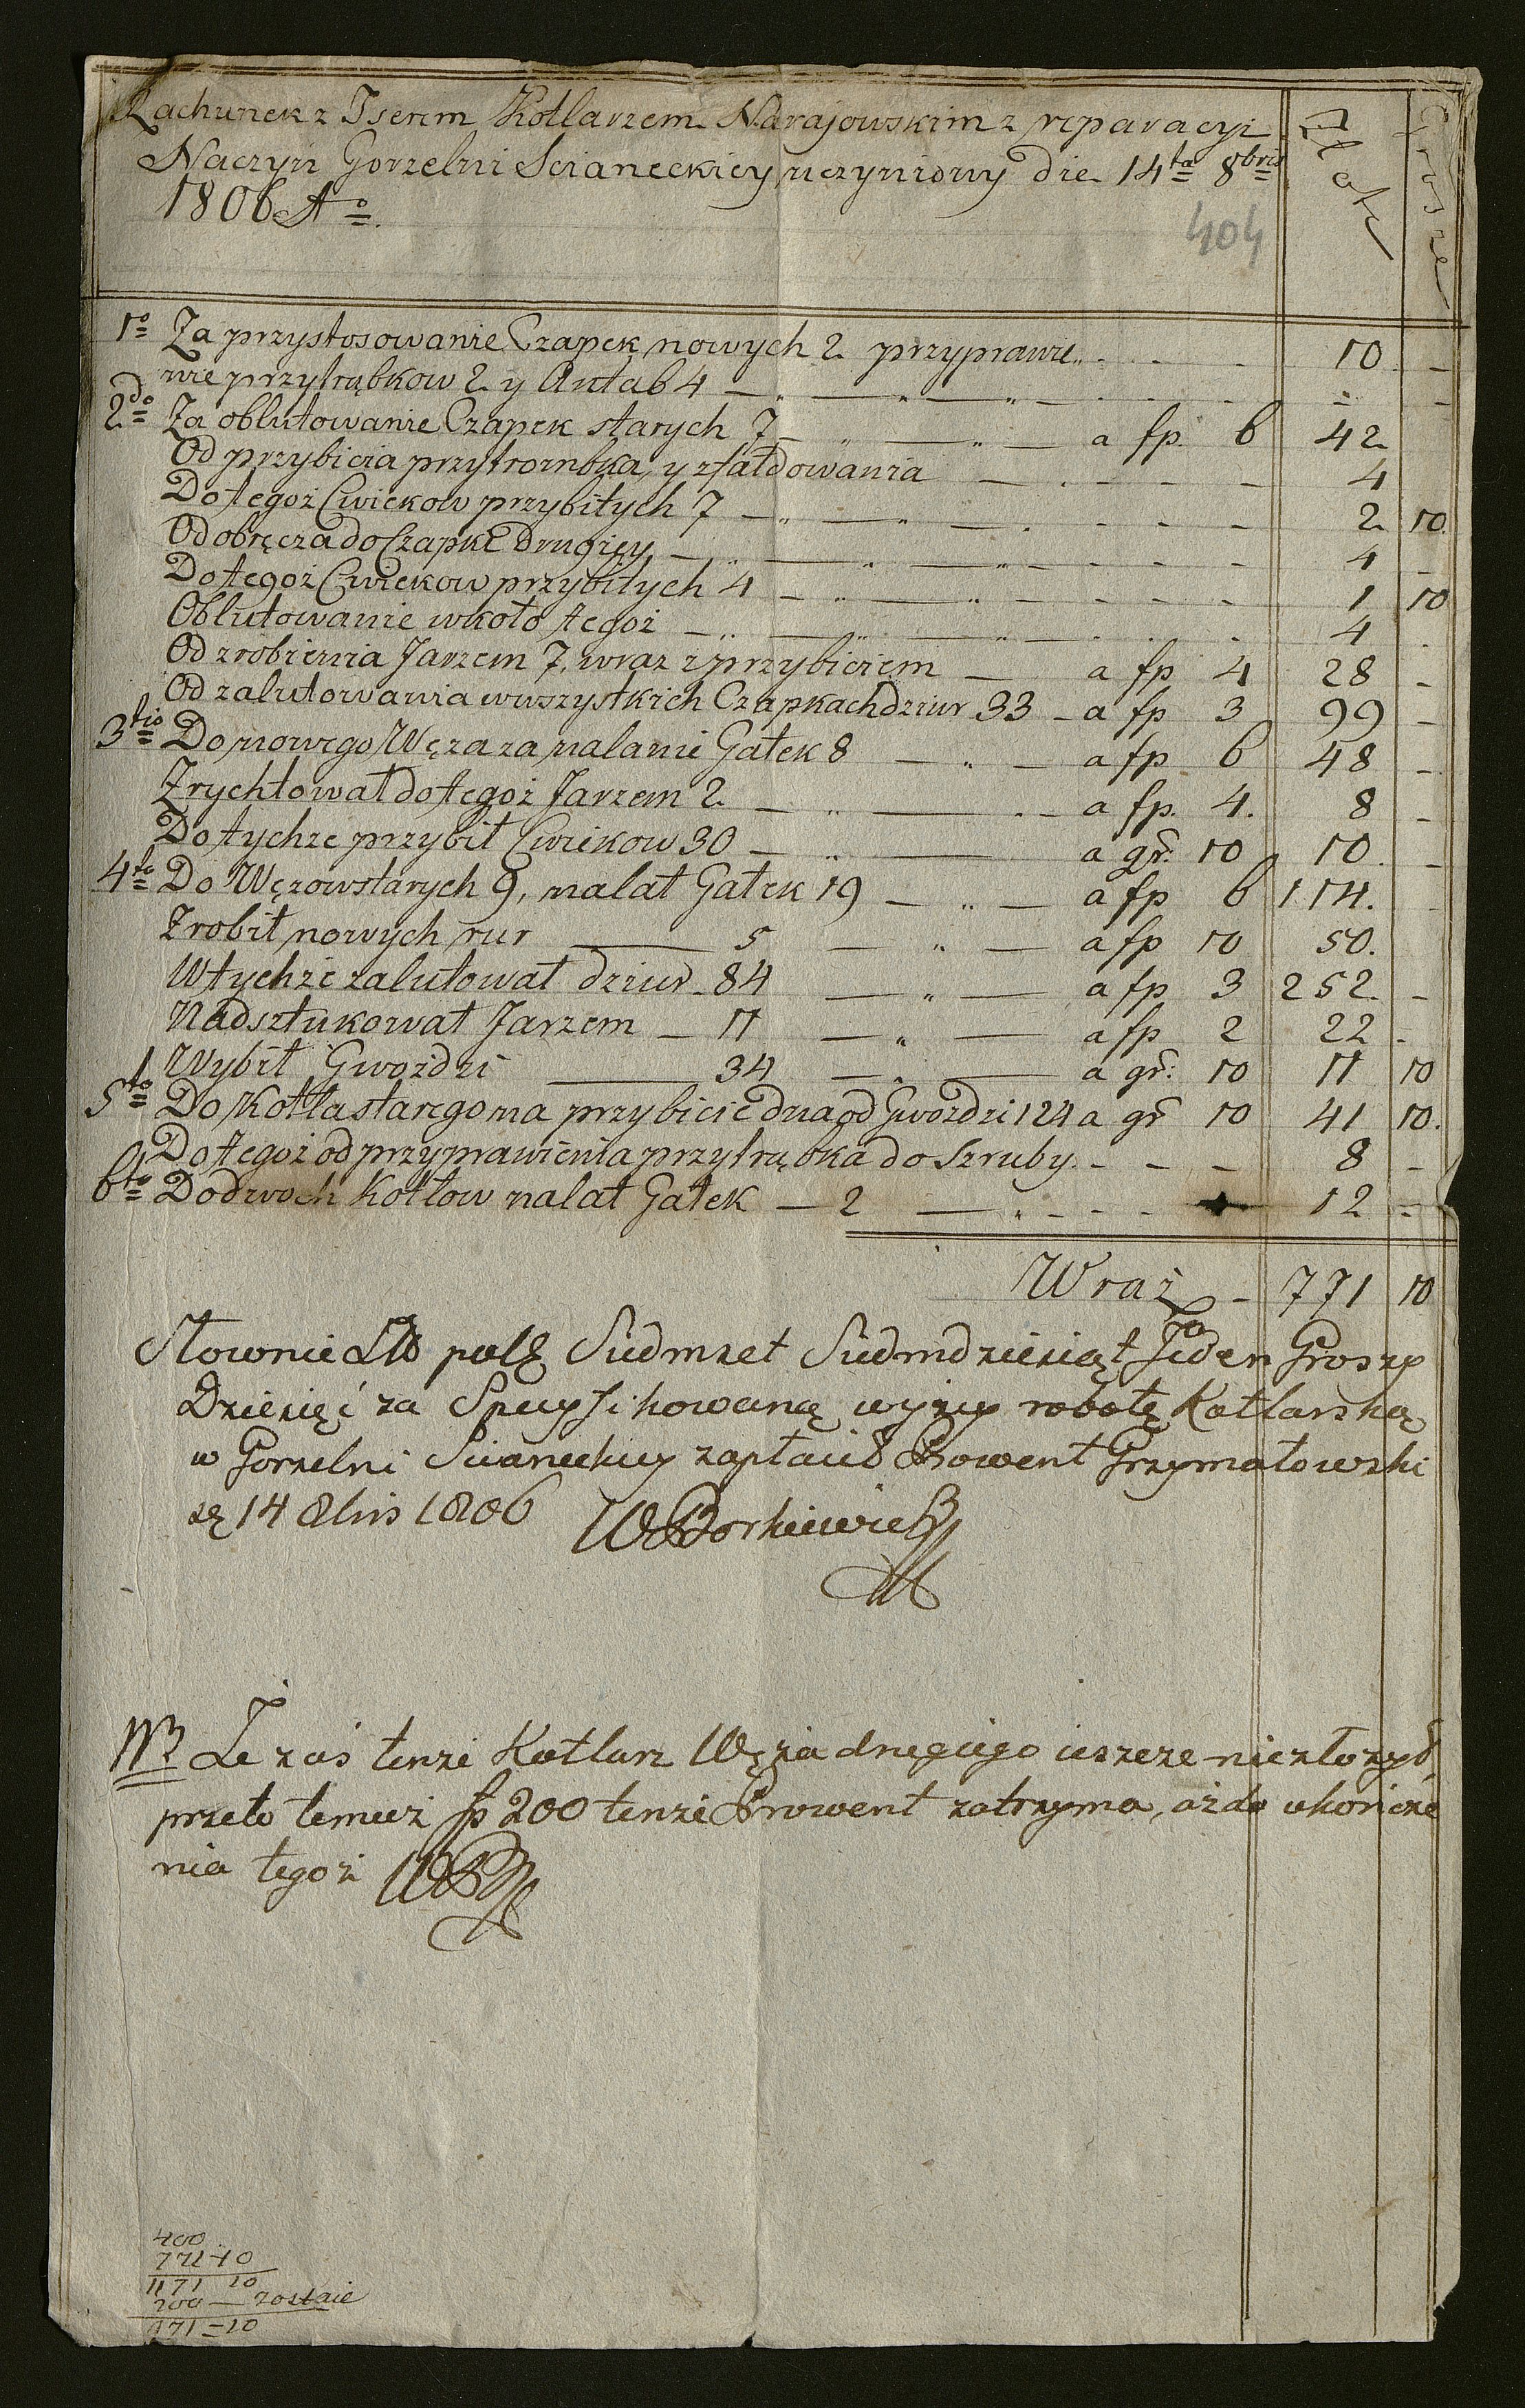 Rachunek z Iserem Kotlarzem Narajowskim z reparacyi Złote Grosze
Naczyń Gorzelni Scianeckiey uczyniony die 14ta 8bris
1806 Ao.
404
1o Za przystosowanie Czapek nowych 2 przyprawie 10 -
nie przytrąbkow 2 y Antab 4 - - -
2do Za oblutowanie Czapek starych 7 - a fp. 6 42
Od przybicia przytrombka, y zfałdowania - 4
Do tegoż Cwiekow przybitych 7 - 2 10.
Od obręcza do Czapki Drugiey - 4 -
Do tegoż Cwiekow przybitych 4 - 1 10
Oblutowanie wkoło tegoż - 4 -
Od zrobienia Jarzem 7, wraz z przybiciem - a fp 4 28 -
Od zalutowania wwszystkich Czapkach dziur 33 - a fp 3 99 -
3tio Do nowego Węza za nalanie Gałek 8 - a fp 6 48 -
Zrychtował do tegoż Jarzem 2 - a fp. 4. 8 -
Do tychże przybił Cwiekow 30 - a gr. 10 10. -
4to Do Węzow starych 9, nalał Gałek 19 - a fp 6 114.
Zrobił nowych rur - 5 - a fp 10 50.
W tychże zalutował dziur - 84 - a fp 3 252 -
Nadsztukował Jarzem - 11 - a fp 2 22 -
Wybił Gwoździ - 34 - a gr: 10 11 10
5to Do Kotła starego na przybicie dna od Gwoździ 124 a gr 10 41 10.
Do tegoż od przyprawienia przytrąbka do Szruby - - - 8 -
6to Do dwóch Kotłow nalał Gałek - 2 - 12 -
Wraz - 771 10
Słownie Zło polę Siedmset Siedmdziesiąt Jeden Groszy
Dziesięć za Specyfikowaną wyzey robotę Kotlarską
w Gorzelni Scianeckiey zapłacił Prowent Grzymałowski
14 8bris 1806 W Borkiewicz
NB Ze zaś tenże Kotlarz Węża drugiego ieszcze nie złożył,
przeto temuż fp 200 tenże Prowent zatrzyma, aż do ukończe
nia tegoż WB
400
771-10
1171 10
200 - zostaie
971-10